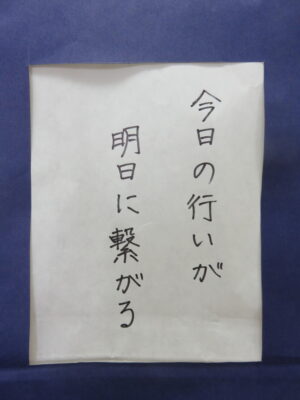 今日の行いが
明日に繋がる